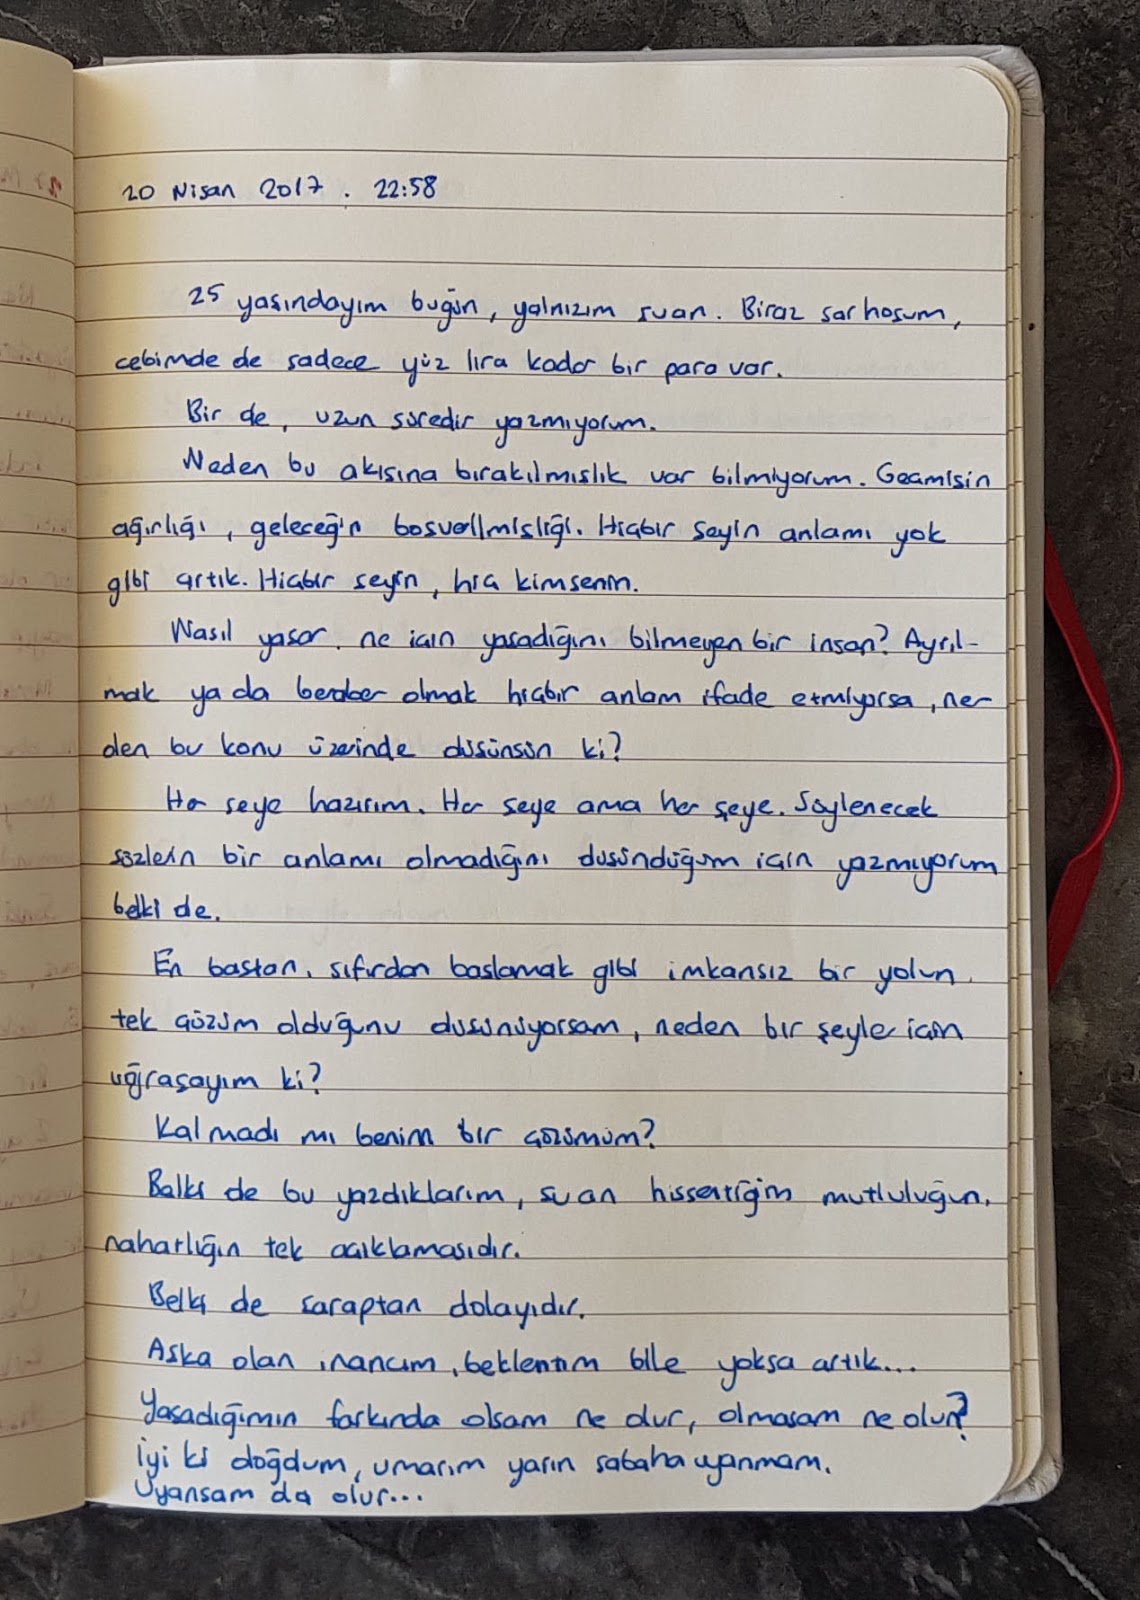 20 Nisan 2017 . 22:58
25 yaşındayım bugün, yalnızım şuan. Biraz sarhoşum,
cebimde de sadece yüz lira kadar bir para var.
Bir de, uzun süredir yazmıyorum.
Neden bu akışına bırakılmışlık var bilmiyorum. Geçmişin
ağırlığı, geleceğin boşverilmişliği. Hiçbir şeyin anlamı yok
gibi artık. Hiçbir şeyin, hiç kimsenin.
Nasıl yaşar, ne için yaşadığını bilmeyen bir insan? Ayrıl-
mak ya da beraber olmak hiçbir anlam ifade etmiyorsa, ne-
den bu konu üzerinde düşünsün ki?
Her şeye hazırım. Her şeye ama her şeye. Söylenecek
sözlerin bir anlamı olmadığını düşündüğüm için yazmıyorum
belki de.
En baştan, sıfırdan başlamak gibi imkansız bir yolun
tek çözüm olduğunu düşünüyorsam, neden bir şeyler için
uğraşayım ki?
Kalmadı mı benim bir çözümüm?
Belki de bu yazdıklarım, şuan hissettiğim mutluluğun,
rahatlığın tek açıklamasıdır.
Belki de şaraptan dolayıdır.
Aşka olan inancım, beklentim bile yoksa artık...
Yaşadığımın farkında olsam ne olur, olmasam ne olur?
İyi ki doğdum, umarım yarın sabaha uyanmam.
Uyansam da olur...